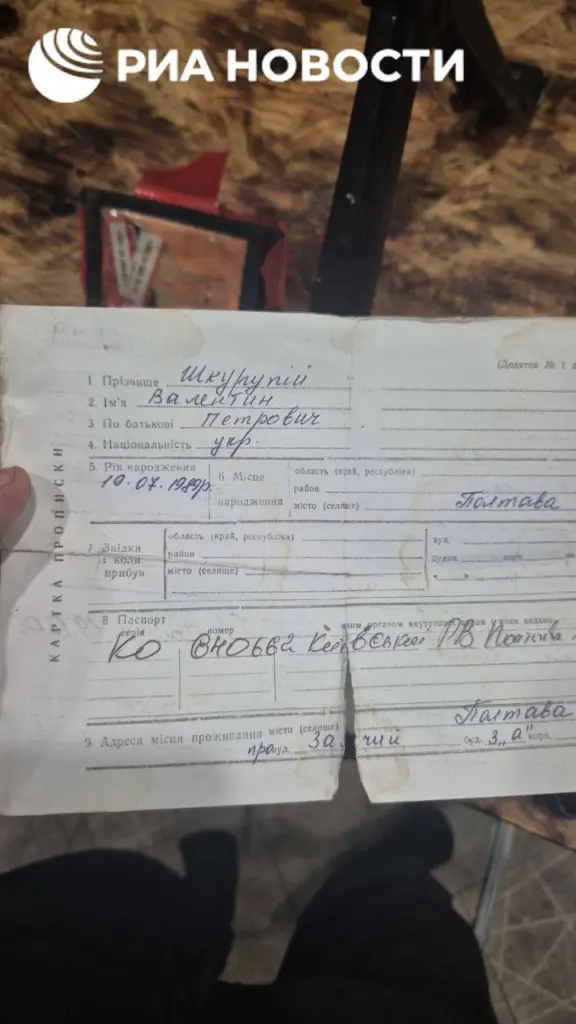 РИА НОВОСТИ
(Додаток № 1 д
КАРТКА ПРОПИСКИ
1 Прізвище Шкурупій
2. Ім'я Валентин
3 По батькові Петрович
4. Національність укр.
5. Рік народження 19.07.1989р.
6. Місце народження
область (край, республіка)
район
місто (селище) Полтава
7 Звідки і коли прибув
область (край, республіка)
район
місто (селище)
вул.
8 Паспорт
серія номер ким органом внутрішніх справ коли видано
КО Київський РВ
9. Адреса місця проживання місто (селище) Полтава
вул. буд. 3 „а" корп.